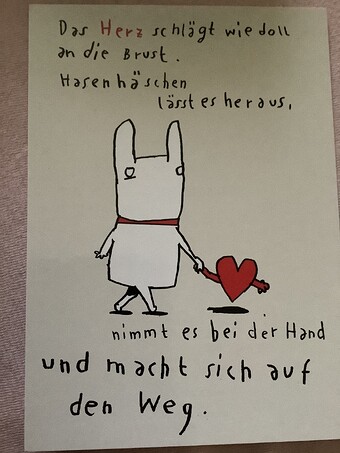 Das Herz schlägt wie doll
an die Brust.
Hasenhäschen
lässt es heraus,
nimmt es bei der Hand
und macht sich auf
den Weg.